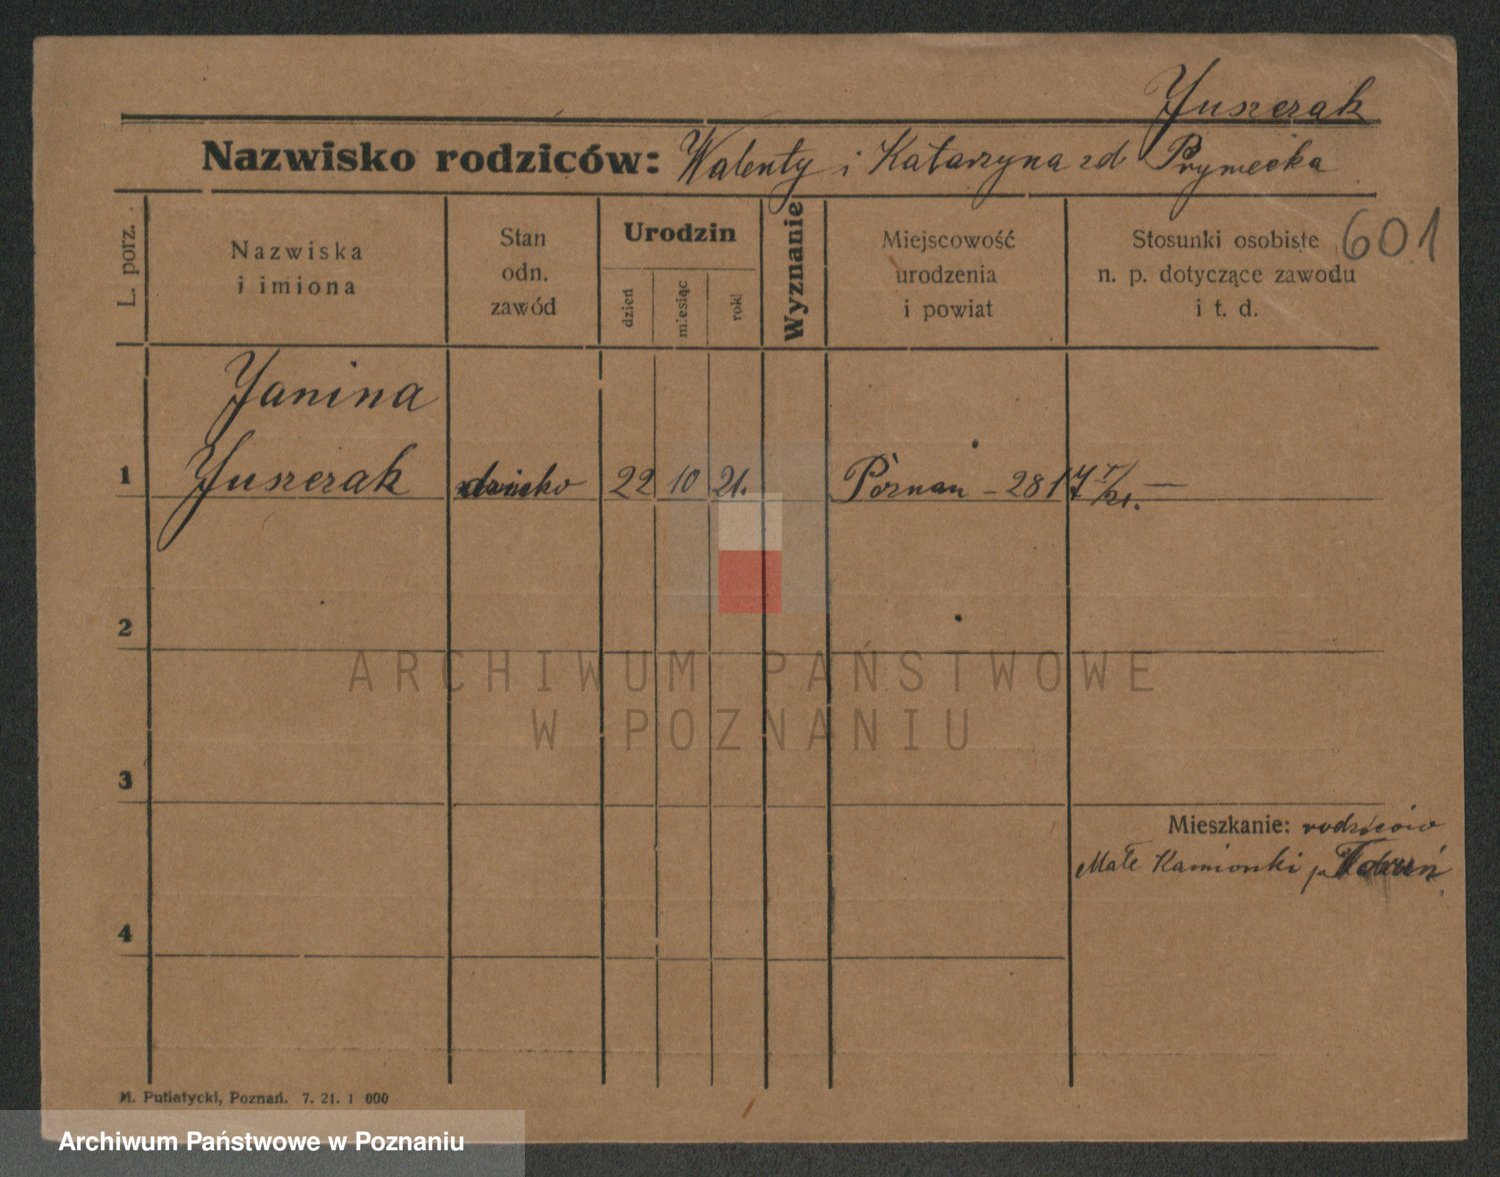 Juszczak
Nazwisko rodziców: Walenty i Katarzyna zd Prymecka
L. porz.
Nazwiska
i imiona
Stan
odn.
zawód
Urodzin
dzień
miesiąc
rok
Wyznanie
Miejscowość
urodzenia
i powiat
Stosunki osobiste
n. p. dotyczące zawodu
i t. d.
601
Janina
1 Juszczak dziecko 22 10 21. Poznań - 2817 I/21. —
2
3
Mieszkanie: rodziców
Małe Kamionki p
4
M. Putiatycki, Poznań. 7. 21. 1 000
ARCHIWUM PAŃSTWOWE
W POZNANIU
Archiwum Państwowe w Poznaniu